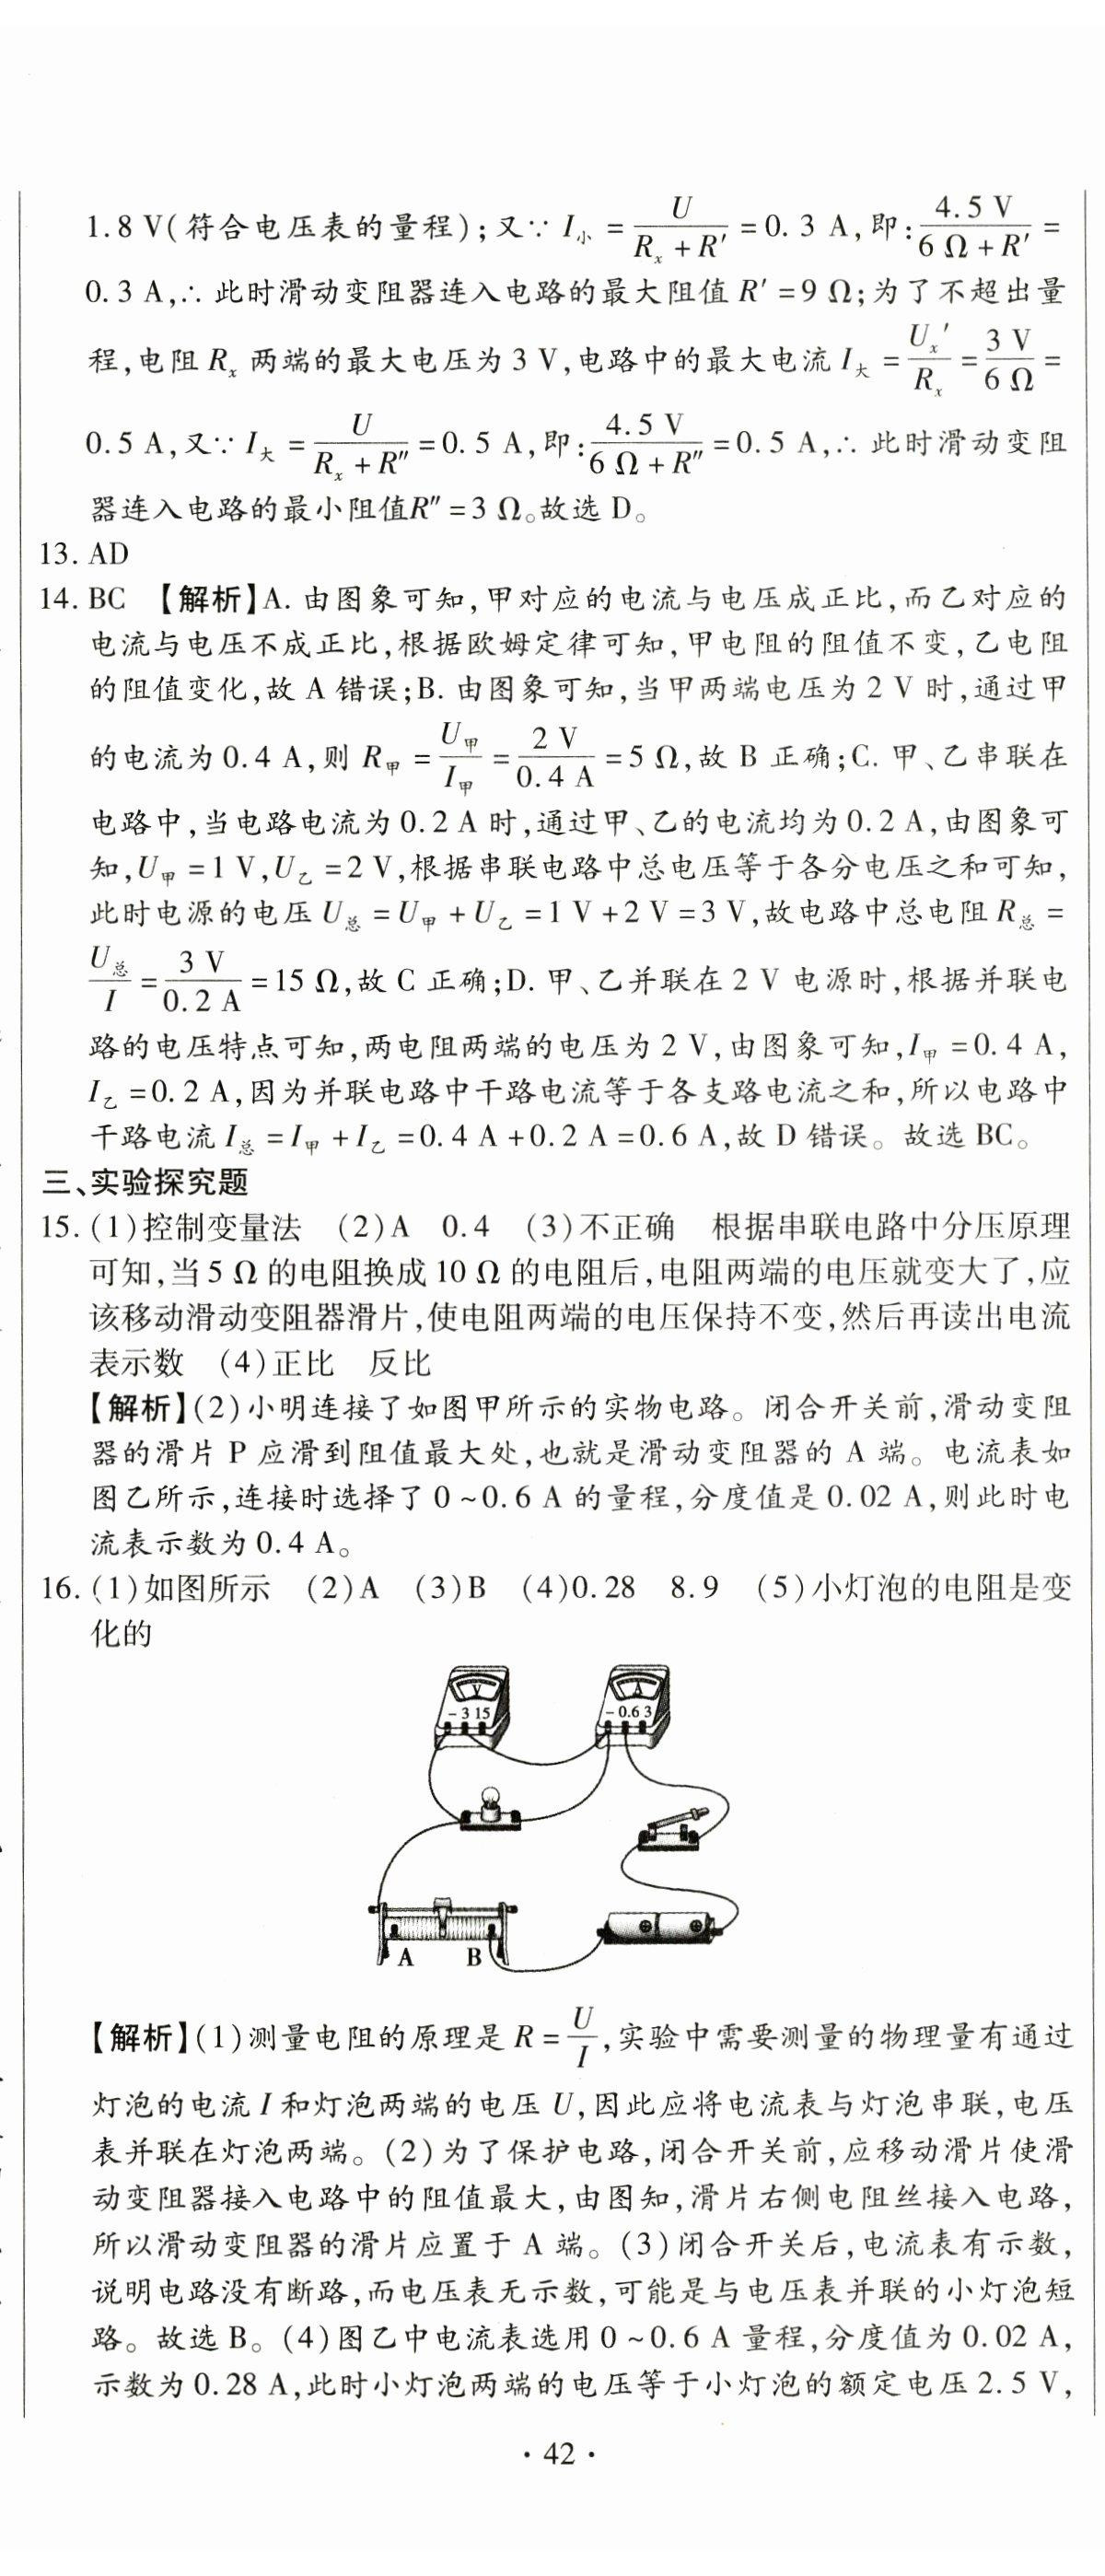 1.8 V(符合电压表的量程);又∵ I小 = U/(Rx + R′) = 0.3 A,即: 4.5 V/(6 Ω + R′) =
0.3 A,∴ 此时滑动变阻器连入电路的最大阻值 R′ = 9 Ω;为了不超出量
程,电阻 Rx 两端的最大电压为 3 V,电路中的最大电流 I大 = Ux′/Rx = 3 V/6 Ω =
0.5 A,又∵ I大 = U/(Rx + R″) = 0.5 A,即: 4.5 V/(6 Ω + R″) = 0.5 A,∴ 此时滑动变阻
器连入电路的最小阻值R″ = 3 Ω。故选 D。
13. AD
14. BC 【解析】A. 由图象可知,甲对应的电流与电压成正比,而乙对应的
电流与电压不成正比,根据欧姆定律可知,甲电阻的阻值不变,乙电阻
的阻值变化,故 A 错误;B. 由图象可知,当甲两端电压为 2 V 时,通过甲
的电流为 0.4 A,则 R甲 = U甲/I甲 = 2 V/0.4 A = 5 Ω,故 B 正确;C. 甲、乙串联在
电路中,当电路电流为 0.2 A 时,通过甲、乙的电流均为 0.2 A,由图象可
知,U甲 = 1 V,U乙 = 2 V,根据串联电路中总电压等于各分电压之和可知,
此时电源的电压 U总 = U甲 + U乙 = 1 V + 2 V = 3 V,故电路中总电阻 R总 =
U总/I = 3 V/0.2 A = 15 Ω,故 C 正确;D. 甲、乙并联在 2 V 电源时,根据并联电
路的电压特点可知,两电阻两端的电压为 2 V,由图象可知,I甲 = 0.4 A,
I乙 = 0.2 A,因为并联电路中干路电流等于各支路电流之和,所以电路中
干路电流 I总 = I甲 + I乙 = 0.4 A + 0.2 A = 0.6 A,故 D 错误。故选 BC。
三、实验探究题
15. (1)控制变量法 (2)A 0.4 (3)不正确 根据串联电路中分压原理
可知,当 5 Ω 的电阻换成 10 Ω 的电阻后,电阻两端的电压就变大了,应
该移动滑动变阻器滑片,使电阻两端的电压保持不变,然后再读出电流
表示数 (4)正比 反比
【解析】(2)小明连接了如图甲所示的实物电路。闭合开关前,滑动变阻
器的滑片 P 应滑到阻值最大处,也就是滑动变阻器的 A 端。电流表如
图乙所示,连接时选择了 0 ~ 0.6 A 的量程,分度值是 0.02 A,则此时电
流表示数为 0.4 A。
16. (1)如图所示 (2)A (3)B (4)0.28 8.9 (5)小灯泡的电阻是变
化的
V
- 3 15
A
- 0.6 3
A B
【解析】(1)测量电阻的原理是 R = U/I,实验中需要测量的物理量有通过
灯泡的电流 I 和灯泡两端的电压 U,因此应将电流表与灯泡串联,电压
表并联在灯泡两端。(2)为了保护电路,闭合开关前,应移动滑片使滑
动变阻器接入电路中的阻值最大,由图知,滑片右侧电阻丝接入电路,
所以滑动变阻器的滑片应置于 A 端。(3)闭合开关后,电流表有示数,
说明电路没有断路,而电压表无示数,可能是与电压表并联的小灯泡短
路。故选 B。(4)图乙中电流表选用 0 ~ 0.6 A 量程,分度值为 0.02 A,
示数为 0.28 A,此时小灯泡两端的电压等于小灯泡的额定电压 2.5 V,
· 42 ·